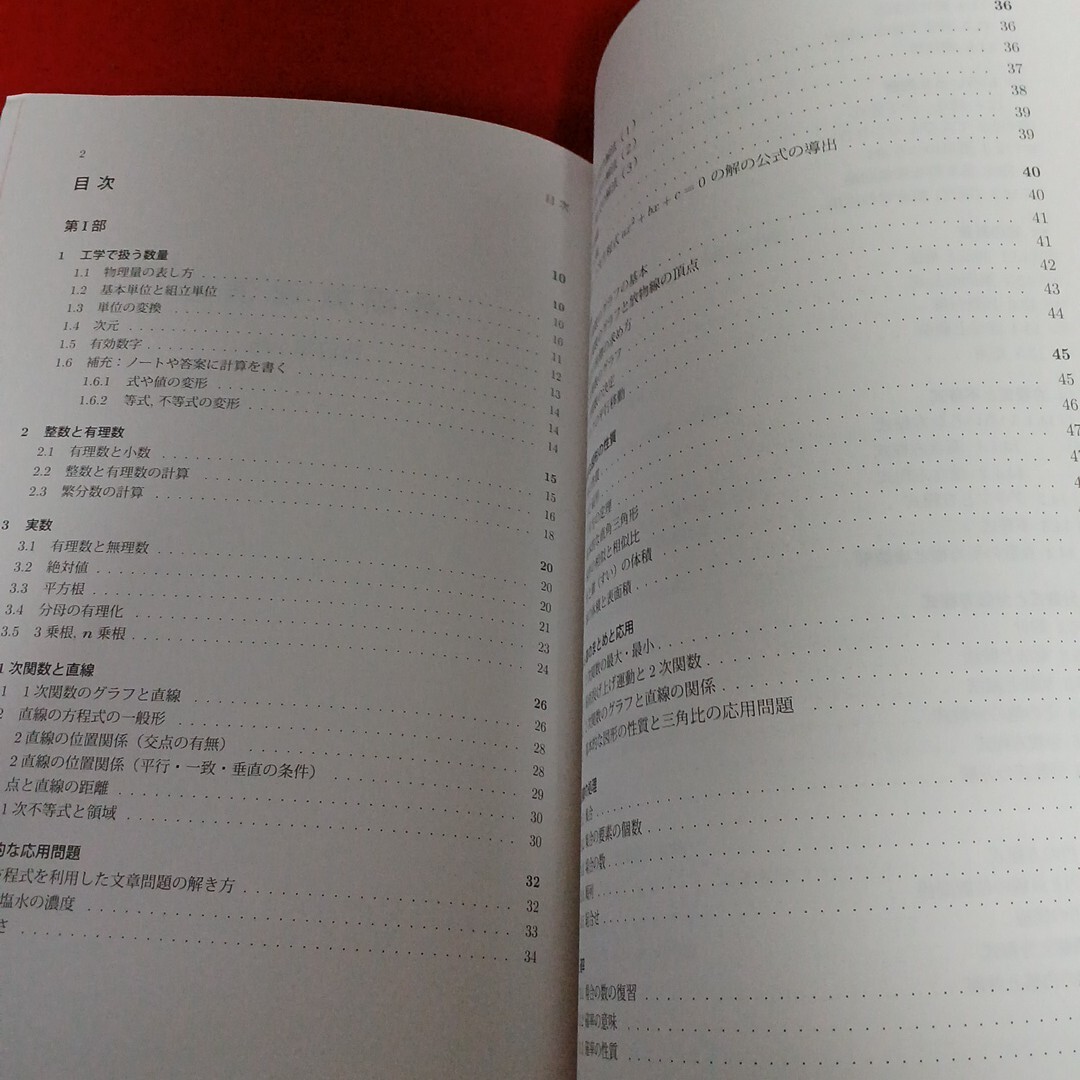 2
目次
目 次
第I部
1 工学で扱う数量 10
1.1 物理量の表し方 10
1.2 基本単位と組立単位 10
1.3 単位の変換 10
1.4 次元 11
1.5 有効数字 12
1.6 補充：ノートや答案に計算を書く 13
1.6.1 式や値の変形 14
1.6.2 等式, 不等式の変形 14
2 整数と有理数 15
2.1 有理数と小数 15
2.2 整数と有理数の計算 16
2.3 繁分数の計算 18
3 実数 20
3.1 有理数と無理数 20
3.2 絶対値 20
3.3 平方根 21
3.4 分母の有理化 23
3.5 3乗根, n乗根 24
1次関数と直線 26
1 1次関数のグラフと直線 26
2 直線の方程式の一般形 28
2直線の位置関係（交点の有無） 28
2直線の位置関係（平行・一致・垂直の条件） 29
点と直線の距離 30
1次不等式と領域 30
的な応用問題 32
方程式を利用した文章問題の解き方 32
塩水の濃度 33
さ 34
36
36
（1） 36
（2） 37
（3） 38
39
ax² + bx + c = 0 の解の公式の導出 39
40
の基本 40
と放物線の頂点 41
の求め方 41
グラフ 42
の決定 43
平行移動 44
の性質 45
45
46
の定理 47
な直角三角形 47
の相似と相似比
（すい）の体積
体積と表面積
のまとめと応用
関数の最大・最小
投げ上げ運動と2次関数
関数のグラフと直線の関係
基本的な図形の性質と三角比の応用問題
の処理
集合
集合の要素の個数
場合の数
順列
組合せ
場合の数の復習
確率の意味
確率の性質